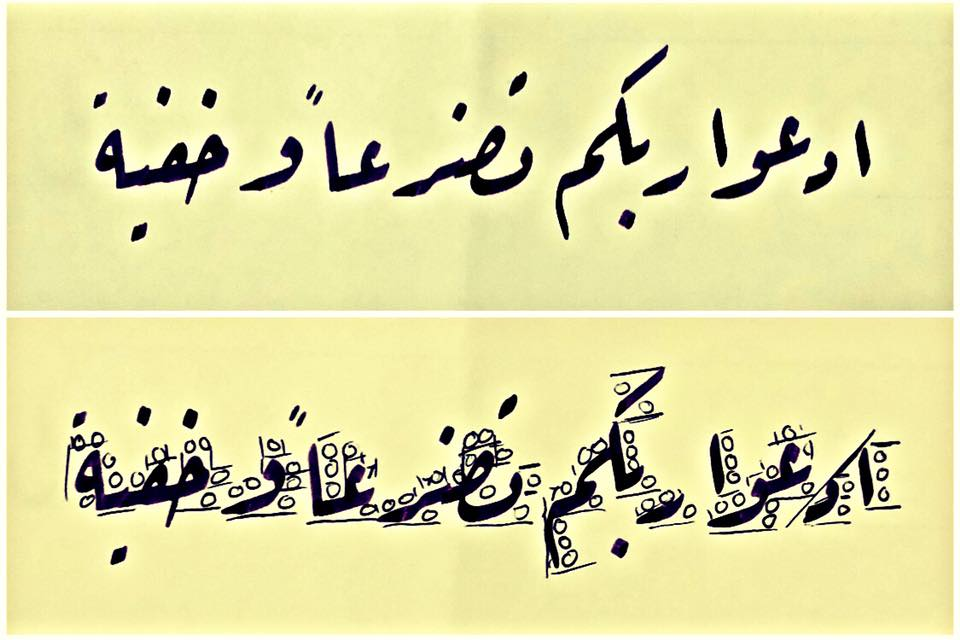 ادعوا ربكم تضرعاً و خفية
ادعوا ربكم تضرعاً و خفية